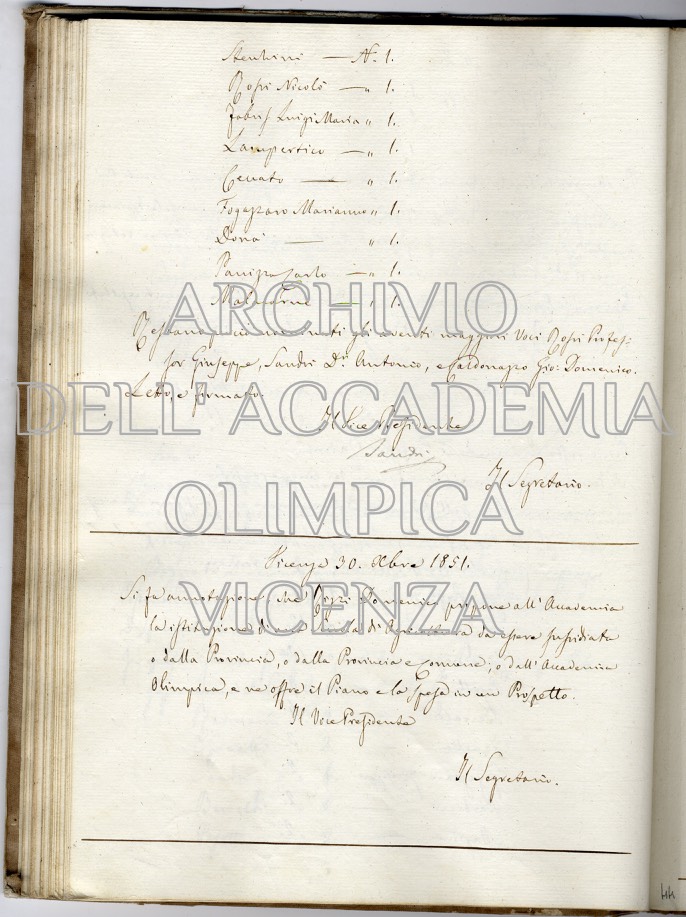 Stecchini — N.° 1.
Rossi Nicolò — „ 1.
Fabris Luigi Maria „ 1.
Lampertico — „ 1.
Cenato — „ 1.
Fogazzaro Marianno „ 1.
— „ 1.
Panizza Carlo — „ 1.
— „ 1.
gli aventi maggiori Voci Rossi Profes-
sor Giuseppe, Sandri Dr. Antonio, e Caldonazzo Gio: Domenico.
Letto, e firmato.
Il Vice Presidente
Sandri
Il Segretario.
Vicenza 30. Xbre 1851.
Si fa annotazione, che Rizzi Domenico propone all'Accademia
la istituzione di una Scuola di Agricoltura da essere sussidiata
o dalla Provincia, o dalla Provincia e Comune; o dall'Accademia
Olimpica, e ne offre il Piano e la Spesa in un Prospetto.
Il Vice Presidente
Il Segretario.
44
ARCHIVIO
DELL'ACCADEMIA
OLIMPICA
VICENZA